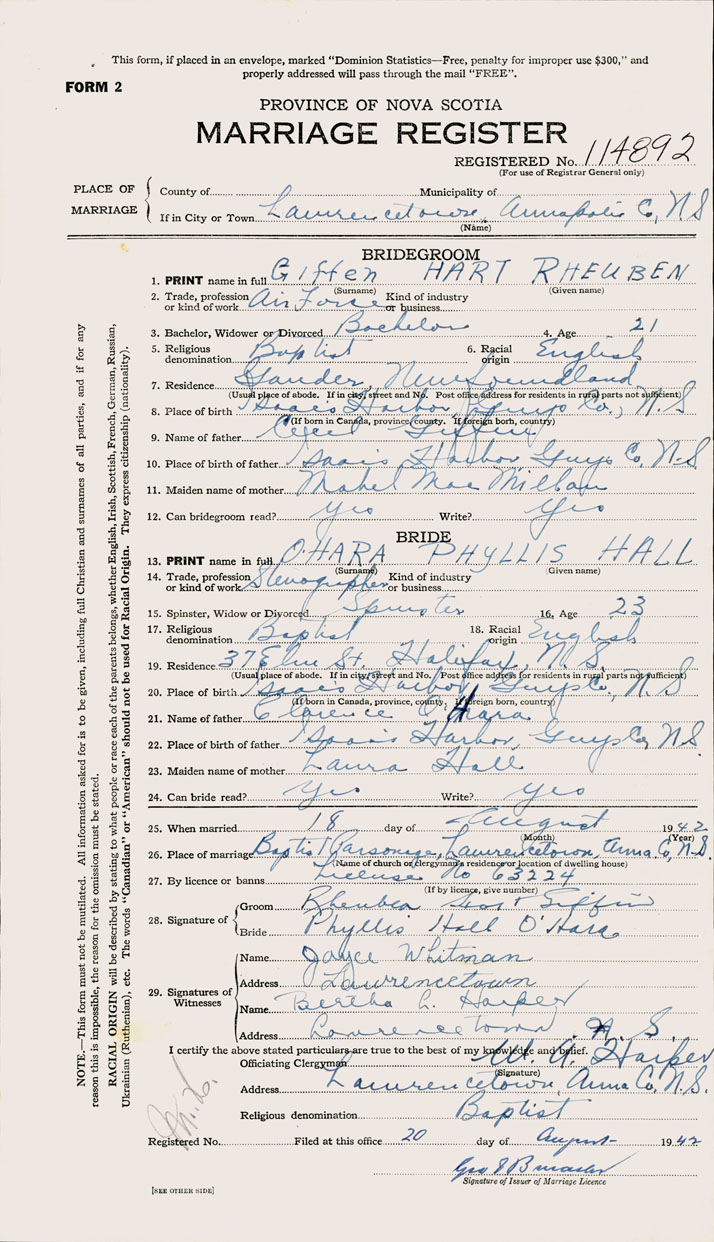 This form, if placed in an envelope, marked "Dominion Statistics—Free, penalty for improper use $300," and
properly addressed will pass through the mail "FREE".
FORM 2
PROVINCE OF NOVA SCOTIA
MARRIAGE REGISTER
REGISTERED No. 114892
(For use of Registrar General only)
PLACE OF MARRIAGE
County of Municipality of
If in City or Town Lawrencetown, Annapolis Co, N S
(Name)
BRIDEGROOM
1. PRINT name in full Giffen HART RHEUBEN
(Surname) (Given name)
2. Trade, profession or kind of work Air Force Kind of industry or business
3. Bachelor, Widower or Divorced Bachelor 4. Age 21
5. Religious denomination Baptist 6. Racial origin English
7. Residence Gander, Newfoundland
(Usual place of abode. If in city, street and No. Post office address for residents in rural parts not sufficient)
8. Place of birth Isaacs Harbor, Guys Co., N. S
(If born in Canada, province, county. If foreign born, country)
9. Name of father Cecil Giffin
10. Place of father Isaacs Harbor Guys Co, N. S.
11. Maiden name of mother Mabel MacMillan
12. Can bridegroom read? Yes Write? Yes
BRIDE
13. PRINT name in full O'HARA PHYLLIS HALL
(Surname) (Given name)
14. Trade, profession or kind of work Stenographer Kind of industry or business
15. Spinster, Widow or Divorced Spinster 16. Age 23
17. Religious denomination Baptist 18. Racial origin English
19. Residence 37 Elm St. Halifax, N. S.
(Usual place of abode. If in city, street and No. Post office address for residents in rural parts not sufficient)
20. Place of birth Isaacs Harbor, Guys Co, N. S
(If born in Canada, province, county. If foreign born, country)
21. Name of father Clarence O'Hara
22. Place of birth of father Isaacs Harbor, Guys Co, N. S
23. Maiden name of mother Laura Hall
24. Can bride read? Yes Write? Yes
25. When married 18 day of August 1942
(Month) (Year)
26. Place of marriage Baptist Parsonage, Lawrencetown, Anna. Co, N. S.
(Name of church or clergyman's residence or location of dwelling house)
27. By licence or banns License No 63224
(If by licence, give number)
28. Signature of
Groom Rheuben Hart Giffin
Bride Phyllis Hall O'Hara
29. Signatures of Witnesses
Name Joyce Whitman
Address Lawrencetown
Name Bertha L. Harper
Address Lawrencetown, N. S.
I certify the above stated particulars are true to the best of my knowledge and belief.
Officiating Clergyman W. A. Harper
(Signature)
Address Lawrencetown, Anna Co, N. S.
Religious denomination Baptist
Registered No. Filed at this office 20 day of August 1942
Signature of Issuer of Marriage Licence
[SEE OTHER SIDE]
NOTE.—This form must not be mutilated. All information asked for is to be given, including full Christian and surnames of all parties, and if for any
reason this is impossible, the reason for the omission must be stated.
RACIAL ORIGIN will be described by stating to what people or race each of the parents belongs, whether English, Irish, Scottish, French, German, Russian,
Ukrainian (Ruthenian), etc. The words "Canadian" or "American" should not be used for Racial Origin. They express citizenship (nationality).